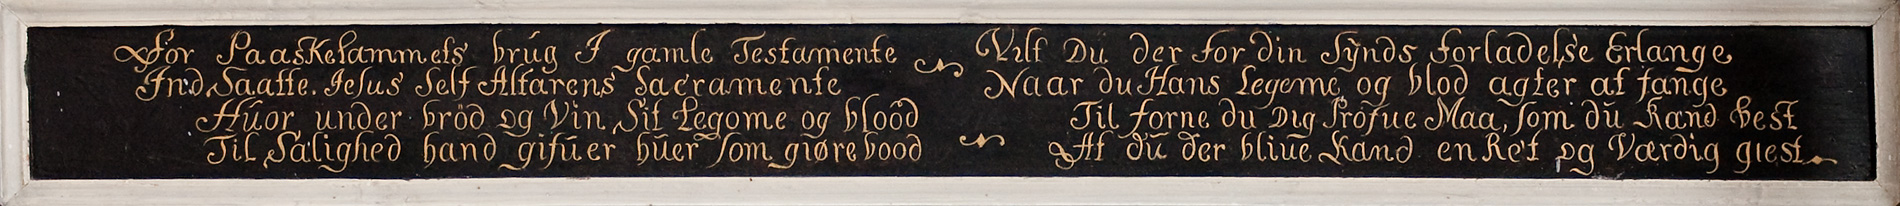 For Paaskelammets brúg I gamle Testamente
Ind Saatte Jesus Self Altarens Sacramente
Húor under bröd og Vin Sit Legome og blood
Til Salighed hand gifúer húer som giøre bood
Vilt Du der for din Sÿnds forladelse Erlange
Naar du Hans Legeme og blod agter at fange
Til forne du Dig Pröfue Maa, som dú kand best
At dú der bliúe kand en Ret og Værdig giest